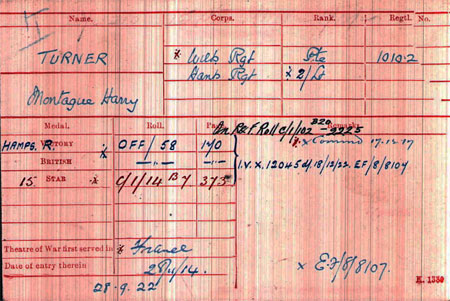 Name. Corps. Rank. Regtl. No.
TURNER x Wilts Rgt Pte 10102
Hants Rgt x 2/Lt
Montague Harry
Medal. Roll. Page. Remarks.
On R&F Roll C/1/102 2225
HAMPS. R. VICTORY x OFF/58 140 x Commd 17.12.17
BRITISH —"— —"— I.V.X. 12045 d/18/12/22. EF/8/8107
15 STAR x C/1/14 B7 375
Theatre of War first served in x France
Date of entry therein /14.
28.9.22 x EF/8/8107.
K. 1380